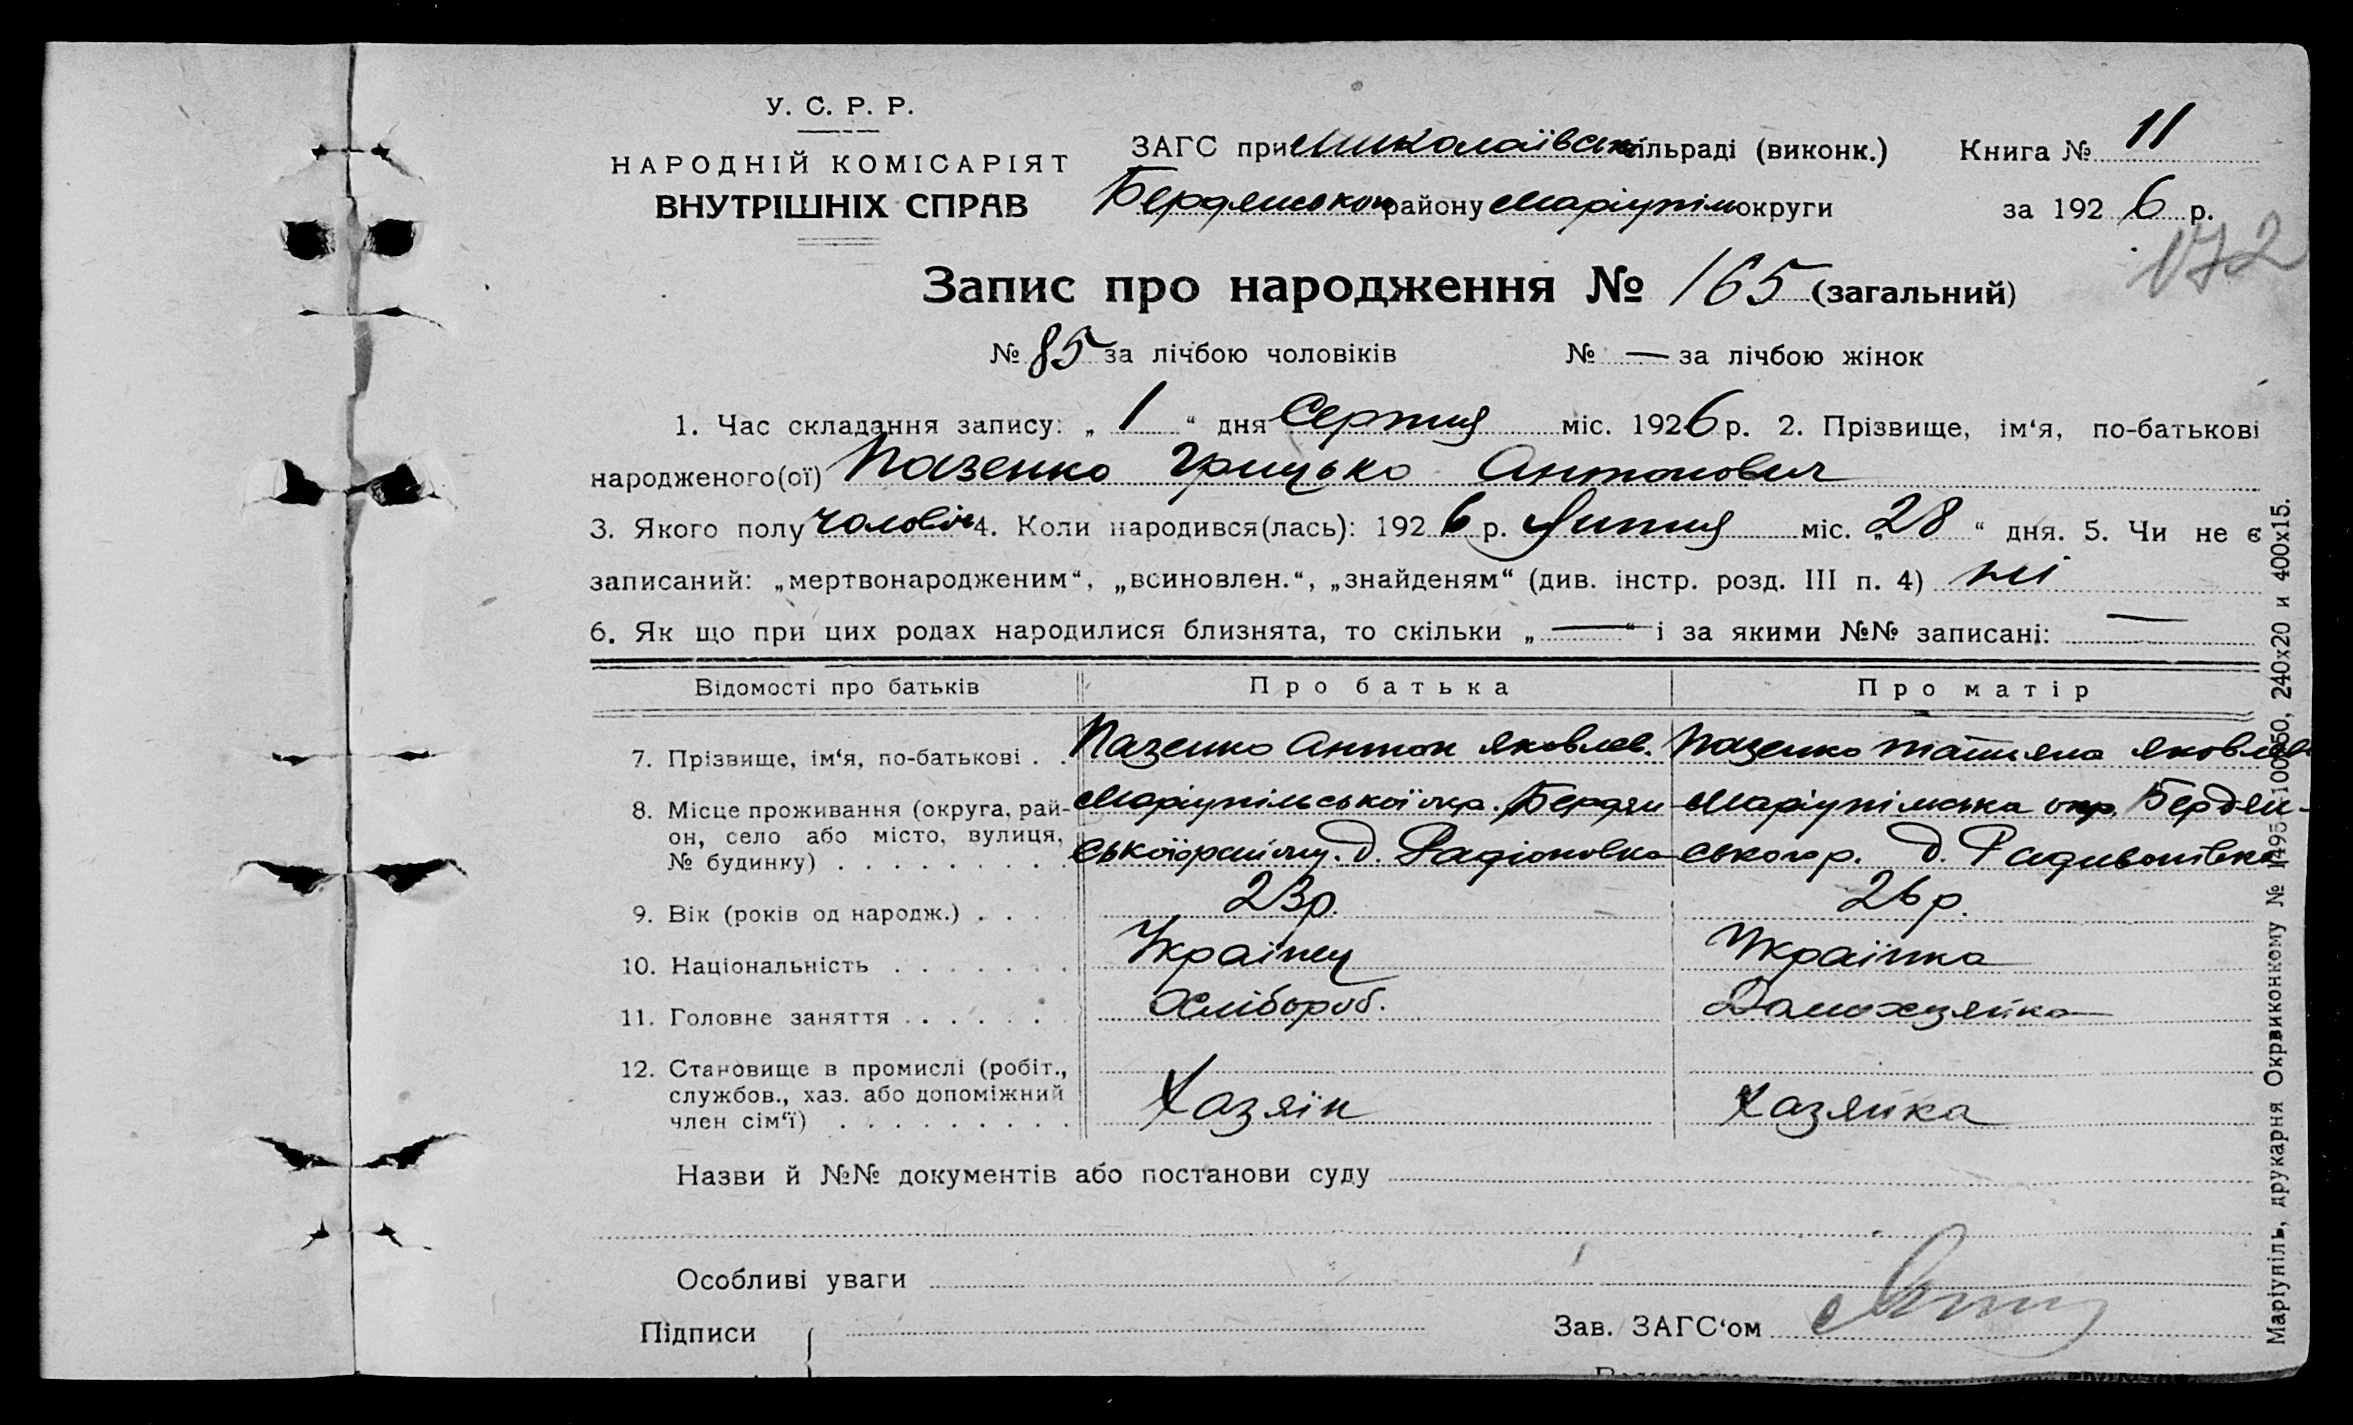 У. С. Р. Р.
НАРОДНІЙ КОМІСАРІЯТ
ВНУТРІШНІХ СПРАВ
ЗАГС при Миколаївськ сільраді (виконк.) Книга № 11
Бердянського району Маріупільс округи за 1926 р.
172
Запис про народження № 165 (загальний)
№ 85 за лічбою чоловіків № — за лічбою жінок
1. Час складання запису: „ 1 “ дня Серпня міс. 1926 р. 2. Прізвище, ім‘я, по-батькові
народженого(ої) Пазенко Грицько Антонович
3. Якого полу чоловіч 4. Коли народився(лась): 1926 р. Липня міс. „28“ дня. 5. Чи не є
записаний: „мертвонародженим“, „всиновлен.“, „знайденям“ (див. інстр. розд. III п. 4) ні
6. Як що при цих родах народилися близнята, то скільки „ — “ і за якими №№ записані: —
Відомості про батьків Про батька Про матір
7. Прізвище, ім‘я, по-батькові . . Пазенко Антон Яковлев. Пазенко Татияна Яковлев
8. Місце проживання (округа, рай- Маріупільської окр. Бердян Маріупільська окр. Бердян-
он, село або місто, вулиця, № будинку) . . . . . . . . д. Радіоновка ського р. д. Радивонівка
9. Вік (років од народж.) . . . . 23 р. 26 р.
10. Національність . . . . . . . Українец Українка
11. Головне заняття . . . . . . Хлібороб. Домохозяйка
12. Становище в промислі (робіт.,
службов., хаз. або допоміжний
член сім‘ї) . . . . . . . . . Хазяїн Хазяйка
Назви й №№ документів або постанови суду
Особливі уваги
Підписи Зав. ЗАГС‘ом
Маріупіль, друкарня Окрвиконкому № 1495—100050, 240х20 и 400х15.